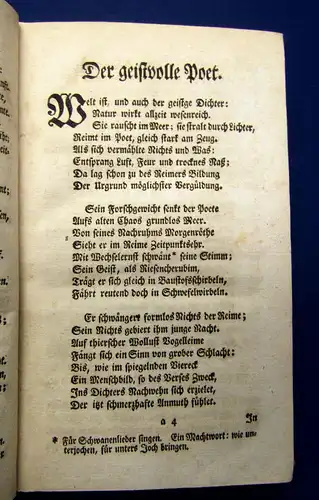 Der geistvolle Poet.
Welt ist, und auch der geistge Dichter:
Natur wirkt allzeit wesenreich.
Sie rauscht im Meer: sie stralt durch Lichter,
Reimt im Poet, gleich stark am Zeug.
Als sich vermählte Nichts und Was:
Entsprang Luft, Feur und trocknes Naß;
Da lag schon zu des Reimers Bildung
Der Urgrund möglichster Vergüldung.
Sein Forschgewicht senkt der Poete
Aufs alten Chaos grundlos Meer.
Von seines Nachruhms Morgenröthe
Sieht er im Reime Zeitpunktsehr.
Mit Wechselernst schwänt* seine Stimm;
Sein Geist, als Riesencherubim,
Trägt er sich gleich in Baustoffsschirbeln,
Fährt reutend doch in Schwefelwirbeln.
Er schwängert formlos Nichts der Reime;
Sein Nichts gebiert ihm junge Nacht.
Auf thierscher Wollust Vogelleime
Fängt sich ein Sinn von grober Schlacht:
Bis, wie im spiegelnden Viereck
Ein Menschbild, so des Verses Zweck,
Ins Dichters Nachwehn sich erzielet,
Der itzt schmerzhafte Anmuth fühlet.
a 4 In
* Für Schwanenlieder singen. Ein Machtwort: wie un-
terjochen, für unters Joch bringen.